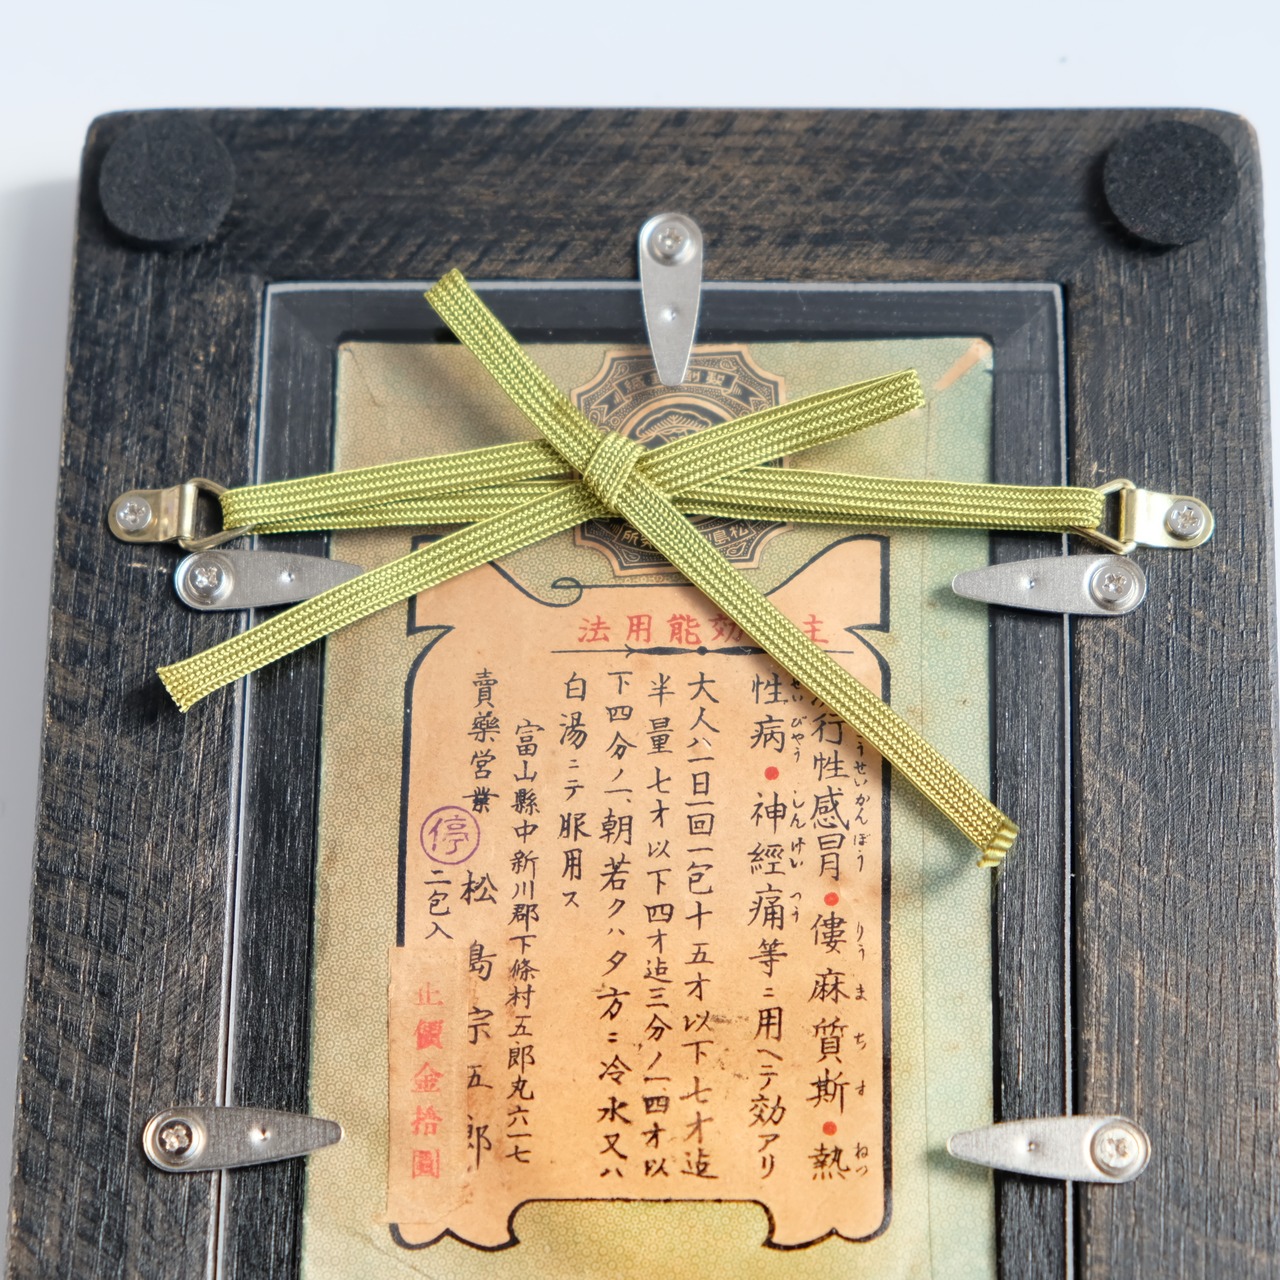 主効能用法
行性感冒●僂麻質斯●熱
うせいかんぼう りうまちす ねつ
性病●神經痛等ニ用ヘテ効アリ
せいびやう しんけいつう
大人ハ一日一回一包十五才以下七才迠
半量七才以下四才迠三分ノ一、四才以
下四分ノ一、朝若クハ夕方ニ冷水又ハ
白湯ニテ服用ス
富山縣中新川郡下條村五郎丸六一七
賣藥営業 松島宗五郎
停
二包入
正價金拾圓